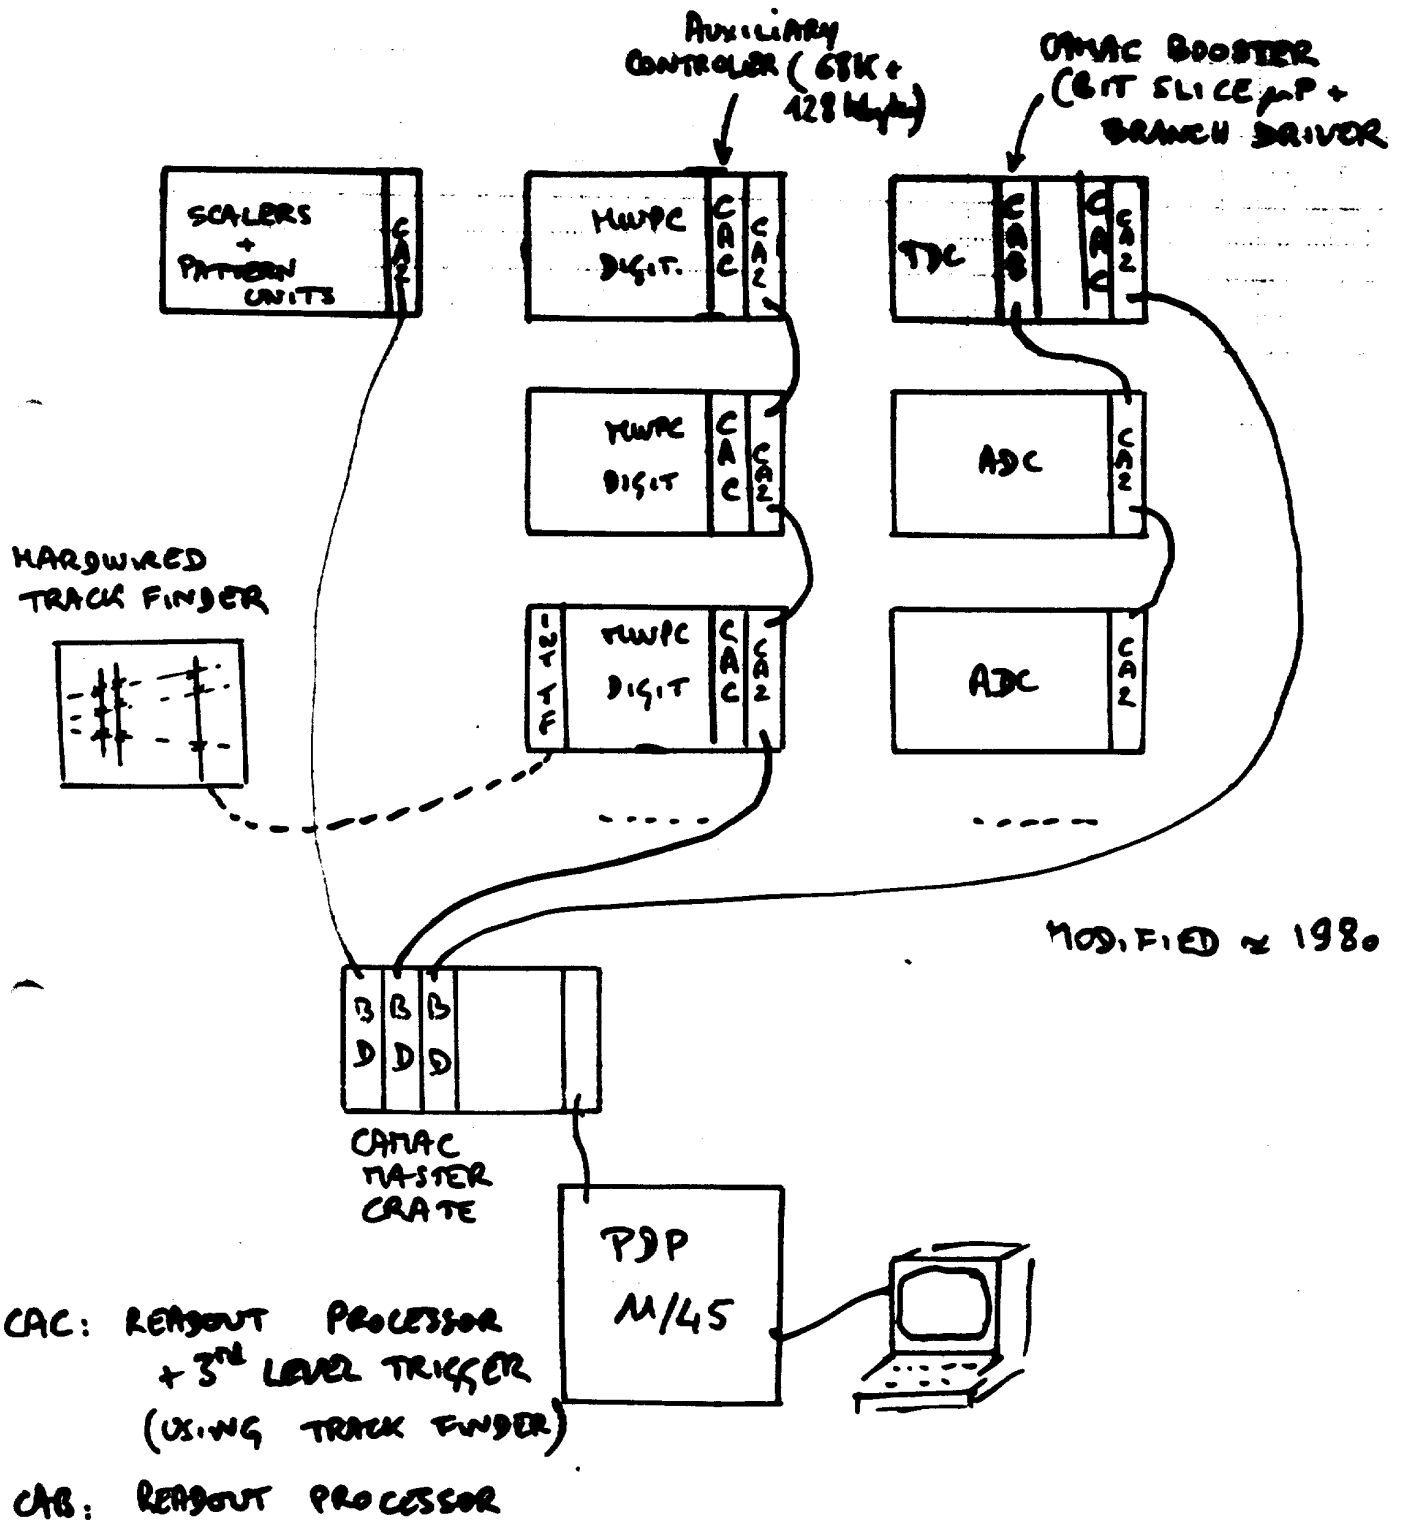 AUXILIARY
CONTROLER (68K +
128 kbytes)
CAMAC BOOSTER
(BIT SLICE μP +
BRANCH DRIVER
SCALERS
+
PATTERN
UNITS
CA2
MWPC
DIGIT.
CAC
CA2
TDC
CAB
CAC
CA2
MWPC
DIGIT
CAC
CA2
ADC
CA2
HARDWIRED
TRACK FINDER
INTTF
MWPC
DIGIT
CAC
CA2
ADC
CA2
MODIFIED ≈ 1980
BD
BD
BD
CAMAC
MASTER
CRATE
PDP
11/45
CAC: READOUT PROCESSOR
+ 3rd LEVEL TRIGGER
(USING TRACK FINDER)
CAB: READOUT PROCESSOR